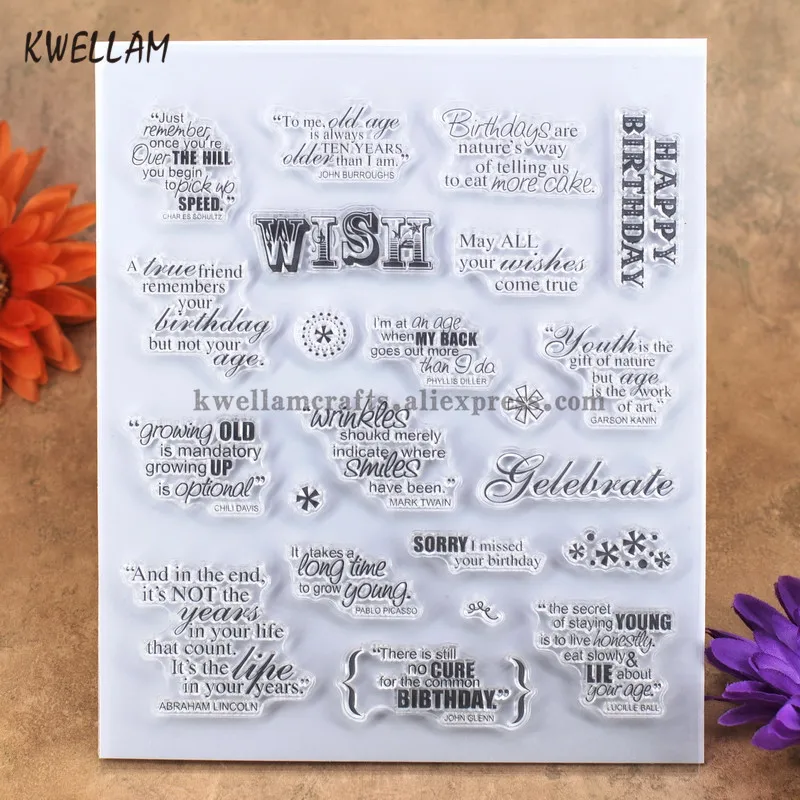 KWELLAM
"Just
remember,
once you're
OVER THE HILL
you begin
to pick up
SPEED."
CHARLES SCHULTZ
"To me, old age
is always
TEN YEARS
older than I am."
JOHN BURROUGHS
Birthdays are
nature's way
of telling us
to eat more cake.
HAPPY
BIRTHDAY
WISH
May ALL
your wishes
come true
A true friend
remembers
your
birthday
but not your
age.
I'm at an age
when MY BACK
goes out more
than I do.
PHYLLIS DILLER
"Youth is the
gift of nature
but age
is the work
of art."
GARSON KANIN
kwellamcrafts.aliexpress.com
"growing OLD
is mandatory
growing UP
is optional"
CHILI DAVIS
"wrinkles
shoukd merely
indicate where
smiles
have been."
MARK TWAIN
Gelebrate
SORRY I missed
your birthday
It takes a
long time
to grow young.
PABLO PICASSO
"And in the end,
it's NOT the
years
in your life
that count.
It's the life
in your years."
ABRAHAM LINCOLN
"There is still
no CURE
for the common
BIBTHDAY."
JOHN GLENN
"the secret
of staying YOUNG
is to live honestly.
eat slowly &
LIE about
your age."
LUCILLE BALL